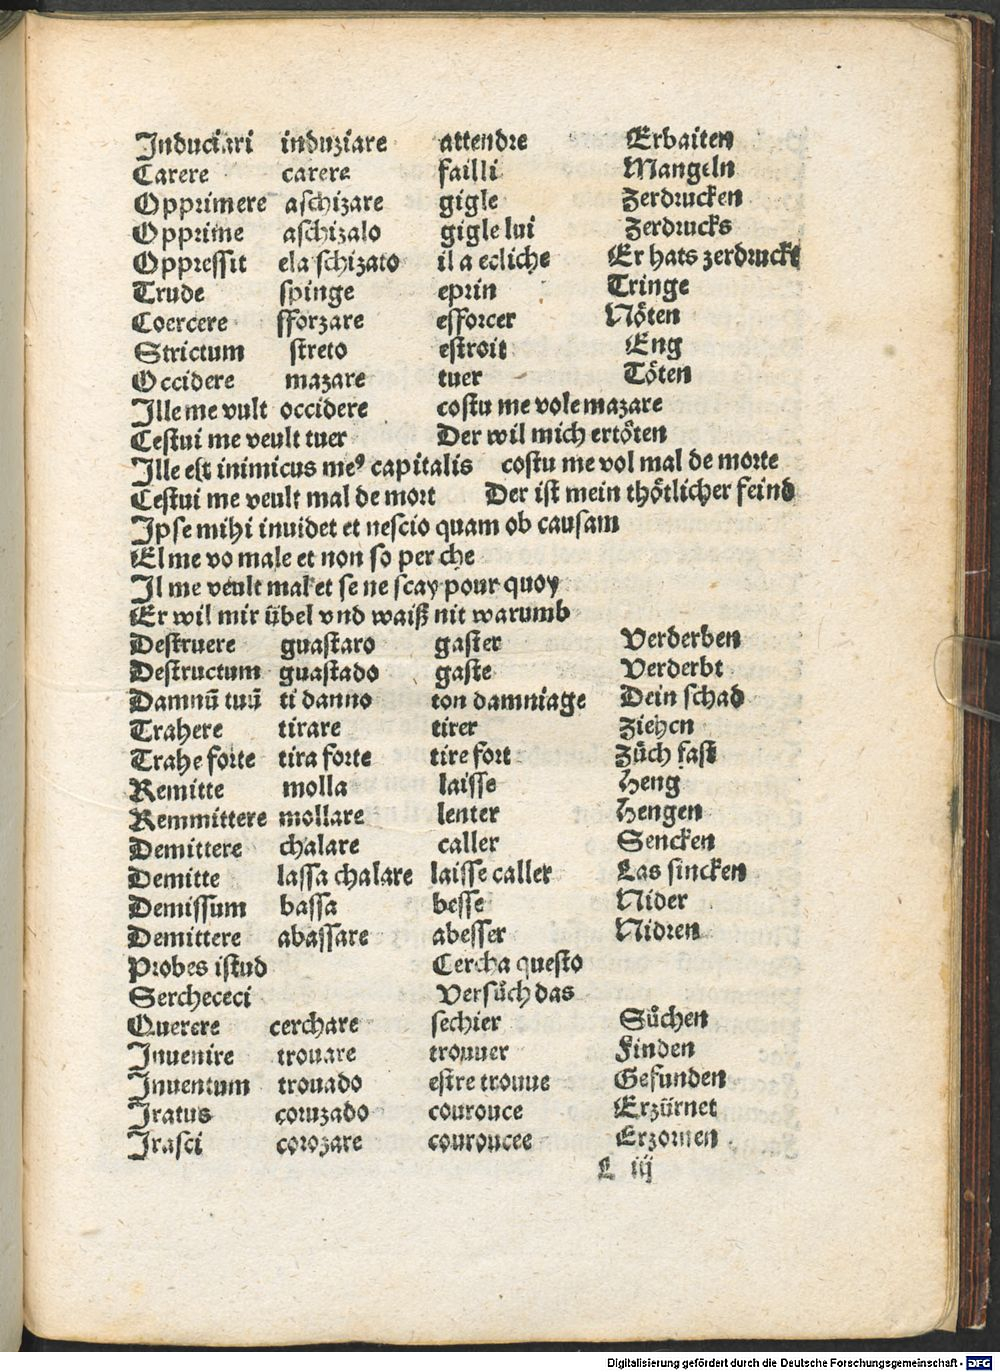 Induciari induziare attendre Erbaiten
Carere carere failli Mangeln
Opprimere aschizare gigle Zerdrucken
Opprime aschizalo gigle lui Zerdrucks
Oppressit ela schizato il a ecliche Er hats zerdruckt
Trude spinge eprin Tringe
Coercere sforzare efforcer Nöten
Strictum streto estroit Eng
Occidere mazare tuer Töten
Ille me vult occidere costu me vole mazare
Cestui me veult tuer Der wil mich ertöten
Ille est inimicus meꝰ capitalis costu me vol mal de morte
Cestui me veult mal de mort Der ist mein thötlicher feind
Ipse mihi inuidet et nescio quam ob causam
El me vo male et non so per che
Il me veult mal et se ne scay pour quoy
Er wil mir übel vnd waiß nit warumb
Destruere guastaro gaster Verderben
Destructum guastado gaste Verderbt
Damnū tuū ti danno ton damniage Dein schad
Trahere tirare tirer Ziehen
Trahe forte tira forte tire fort Züch fast
Remitte molla laisse Heng
Remmittere mollare lenter Hengen
Demittere chalare caller Sencken
Demitte lassa chalare laisse caller Las sincken
Demissum bassa besse Nider
Demittere abassare abesser Nidren
Probes istud Cercha questo
Serchececi Versůch das
Querere cerchare sechier Sůchen
Inuenire trouare trouuer Finden
Inuentum trouado estre trouue Gefunden
Iratus coruzado courouce Erzürnet
Irasci corozare couroucee Erzornen
L iij
Digitalisierung gefördert durch die Deutsche Forschungsgemeinschaft - DFG